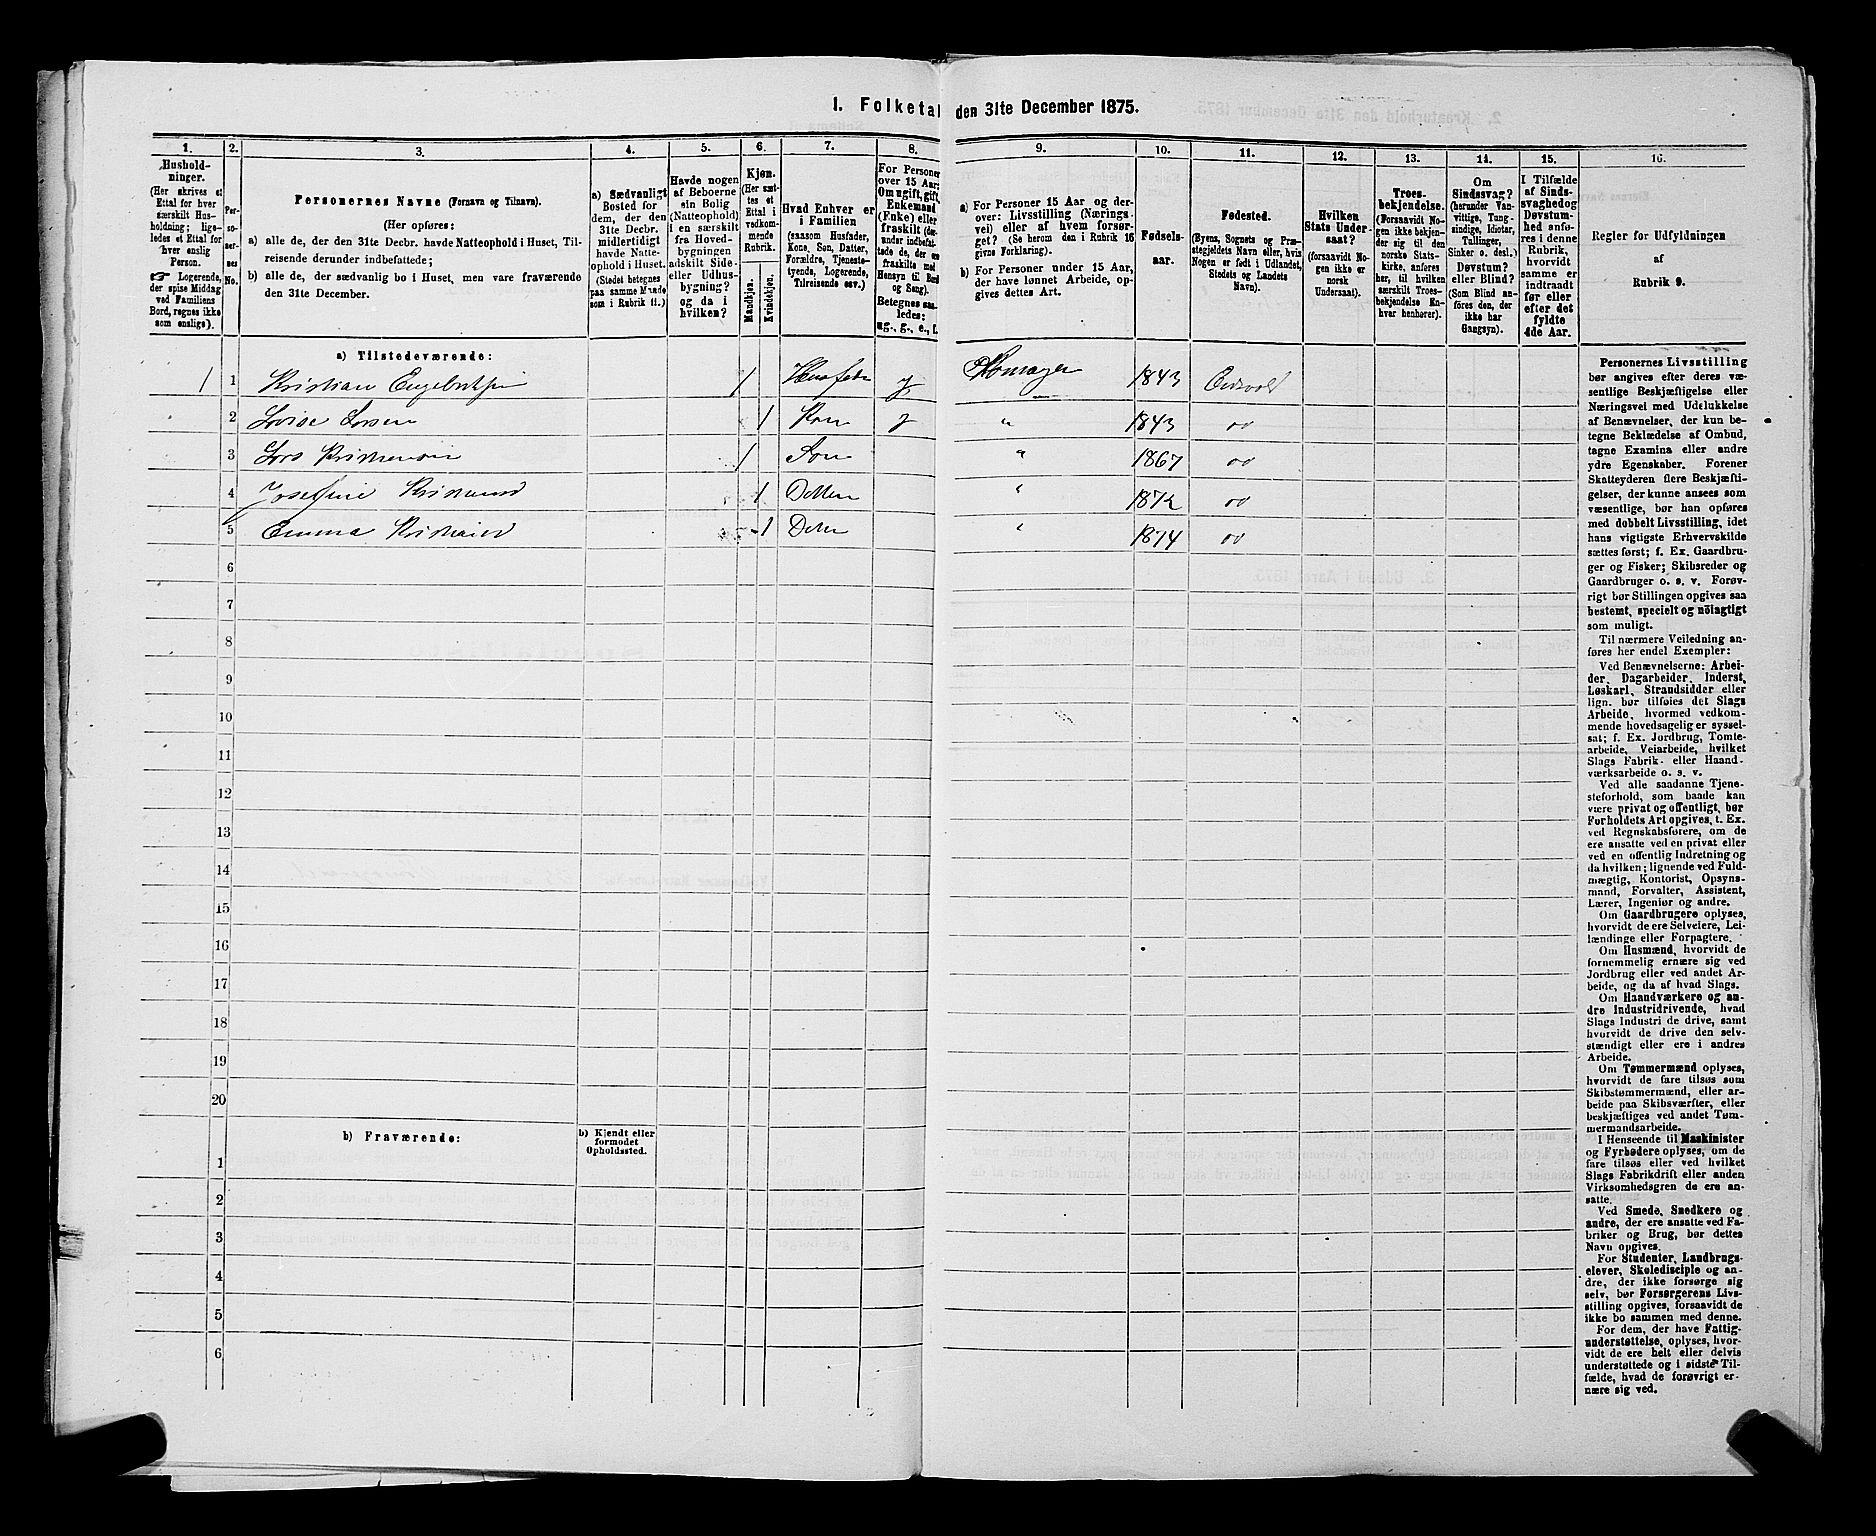 1. Folketal den 31te December 1875.
1.
Husholdninger.
(Her skrives et Ettal for hver særskilt Husholdning; ligeledes et Ettal for hver enslig Person.
☞ Logerende, der spise Middag ved Familiens Bord, regnes ikke som enslige).
2.
Personernes No.
3.
Personernes Navne (Fornavn og Tilnavn).
(Her opføres:
a) alle de, der den 31te Decbr. havde Natteophold i Huset, Tilreisende derunder indbefattede;
b) alle de, der sædvanlig bo i Huset, men vare fraværende den 31te December.
4.
a) Sædvanligt Bosted for dem, der den 31te Decbr. midlertidigt havde Natteophold i Huset.
(Stedet betegnes paa samme Maade som i Rubrik 11.)
5.
Havde nogen af Beboerne ein Bolig (Natteophold) i en særskilt fra Hovedbygningen adskilt Side- eller Udhusbygning? og da i hvilken?
6.
Kjøn.
(Her sættes et Ettal i vedkommende Rubrik.
Mandkjøn.
Kvindekjøn.
7.
Hvad Enhver er i Familien
(saasom Husfader, Kone, Søn, Datter, Forældre, Tjenestetyende, Logerende, Tilreisende osv.)
8.
For Personer over 15 Aar: Om ugift, gift, Enkemand (Enke) eller fraskilt
Betegnes saaledes: ug., g., e., f.
9.
a) For Personer 15 Aar og derover: Livsstilling (Næringsvei) eller af hvem forsørget? (Se herom den i Rubrik 16 givne Forklaring).
b) For Personer under 15 Aar, der have lønnet Arbeide, opgives dettes Art.
10.
Fødselsaar.
11.
Fødested.
(Byens, Sognets og Præstegjeldets Navn eller, hvis Nogen er født i Udlandet, Stedets og Landets Navn).
12.
Hvilken Stats Undersaat?
(forsaavidt Nogen ikke er norsk Undersaat).
13.
Troesbekjendelse.
(Forsaavidt Nogen ikke bekjender sig til den norske Statskirke, anføres her, til hvilken særskilt Troesbekjendelse Enhver henhører).
14.
Om Sindssvag?
(herunder Vanvittige, Tungsindige, Idioter, Tullinger, Sinker o. desl.)
Døvstum? eller Blind?
(Som Blind anføres den, der ikke har Gangsyn).
15.
I Tilfælde af Sindssvaghed og Døvstumhed anføres i denne Rubrik, hvorvidt samme er indtraadt før eller efter det fyldte 4de Aar.
16.
Regler for Udfyldningen
af
Rubrik 9.
a) Tilstedeværende:
1 1 Kristian Engelbrethsen 1 Husfader g 1843 Eidsvold
2 Lovise Larsen 1 Kone g " 1843 do
3 Lars Kristiansen 1 Søn " 1867 do
4 Josefine Kristiansd 1 Datter " 1872 do
5 Emma Kristiansd 1 Datter " 1874 do
6
7
8
9
10
11
12
13
14
15
16
17
18
19
20
b) Fraværende:
b) Kjendt eller formodet Opholdssted.
1
2
3
4
5
6
Personernes Livsstilling
bør angives efter deres væsentlige Beskjæftigelse eller
Næringsvei med Udelukkelse
af Benævnelser, der kun betegne Beklædelse af Ombud,
tagne Examina eller andre
ydre Egenskaber. Forener
Skatteyderen flere Beskjæftigelser, der kunne ansees som
væsentlige, bør han opføres
med dobbelt Livsstilling, idet
hans vigtigste Erhvervskilde
sættes først; f. Ex. Gaardbruger og Fisker; Skibsreder og
Gaardbruger o. s. v. Forøvrigt bør Stillingen opgives saa
bestemt, specielt og nöiagtigt
som muligt.
Til nærmere Veiledning anføres her endel Exempler:
Ved Benævnelserne: Arbeider, Dagarbeider, Inderst,
Løskarl, Strandsidder eller
lign. bør tilføies det Slags
Arbeide, hvormed vedkommende hovedsagelig er sysselsat; f. Ex. Jordbrug, Tomtearbeide, Veiarbeide, hvilket
Slags Fabrik- eller Haandværksarbeide o. s. v.
Ved alle saadanne Tjenesteforhold, som baade kan
være privat og offentligt, bør
Forholdets Art opgives, t. Ex.
ved Regnskabsførere, om de
ere ansatte ved en privat eller
ved en offentlig Indretning og
da hvilken; lignende ved Fuldmægtig, Kontorist, Opsynsmand, Forvalter, Assistent,
Lærer, Ingeniør og andre.
Om Gaardbrugere oplyses,
hvorvidt de ere Selveiere, Leilændinge eller Forpagtere.
Om Husmænd, hvorvidt de
fornemmelig ernære sig ved
Jordbrug eller ved andet Arbeide, og da af hvad Slags.
Om Haandværkere og andre Industridrivende, hvad
Slags Industri de drive, samt
hvorvidt de drive den selvstændigt eller ere i andres
Arbeide.
Om Tømmermænd oplyses,
hvorvidt de fare tilsøs som
Skibstømmermænd, eller arbeide paa Skibsværfter, eller
beskjæftiges ved andet Tømmermandsarbeide.
I Henseende til Maskinister
og Fyrbødere oplyses, om de
fare tilsøs eller ved hvilket
Slags Fabrikdrift eller anden
Virksomhedsgren de ere ansatte.
Ved Smede, Snedkere og
andre, der ere ansatte ved Fabriker og Brug, bør dettes
Navn opgives.
For Studenter, Landbrugselever, Skoledisciple og andre, der ikke forsørge sig
selv, bør Forsørgerens Livsstilling opgives, forsaavidt de
ikke bo sammen med denne.
For dem, der have Fattigunderstøttelse, oplyses, hvorvidt de ere helt eller delvis
understøttede og i sidste Tilfælde, hvad de forøvrigt ernære sig ved.